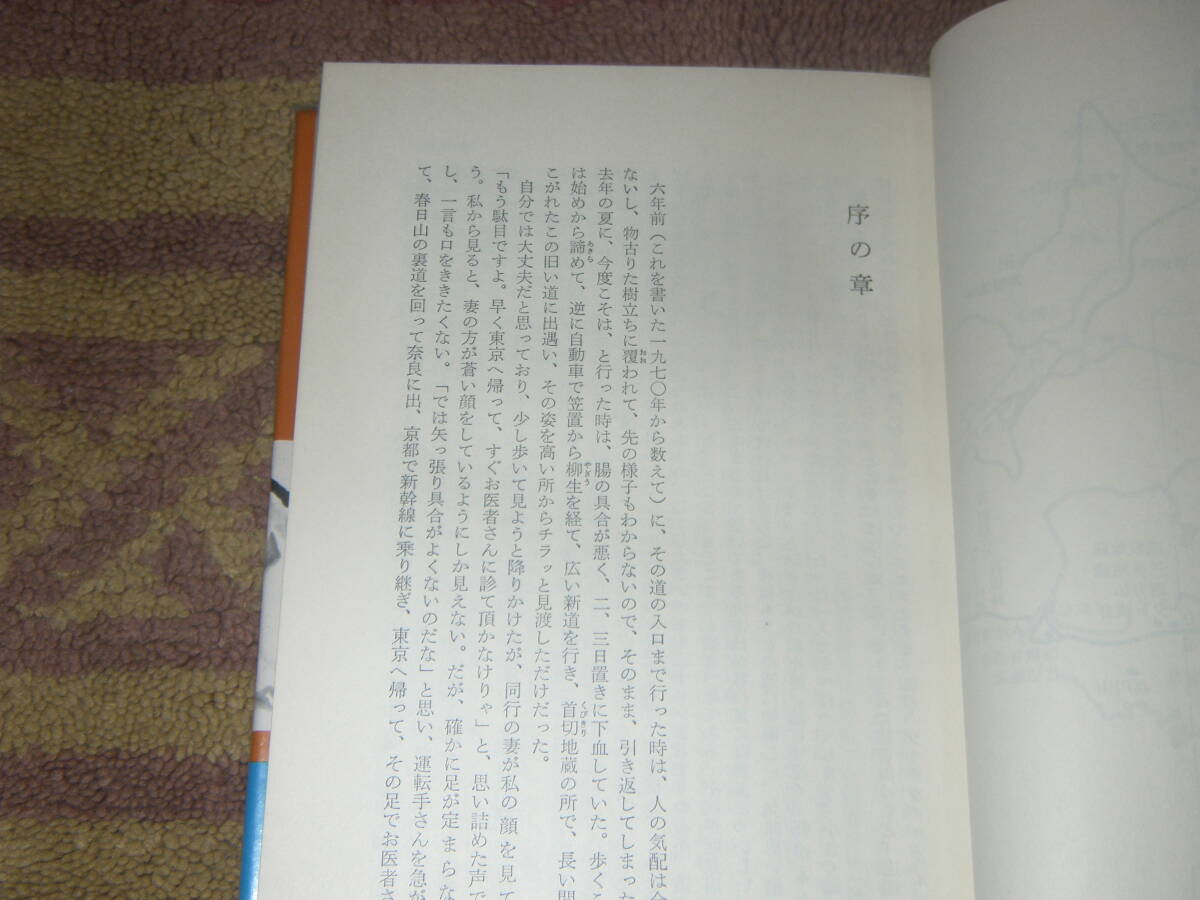 序の章
六年前（これを書いた一九七〇年から数えて）に、その道の入口まで行った時は、人の気配は
ないし、物古りた樹立ちに覆われて、先の様子もわからないので、そのまま、引き返してしまった
去年の夏に、今度こそは、と行った時は、腸の具合が悪く、二、三日置きに下血していた。歩くこ
は始めから諦めて、逆に自動車で笠置から柳生を経て、広い新道を行き、首切地蔵の所で、長い間
こがれたこの旧い道に出遇い、その姿を高い所からチラッと見渡しただけだった。
自分では大丈夫だと思っており、少し歩いて見ようと降りかけたが、同行の妻が私の顔を見て
「もう駄目ですよ。早く東京へ帰って、すぐお医者さんに診て頂かなけりゃ」と、思い詰めた声で
う。私から見ると、妻の方が蒼い顔をしているようにしか見えない。だが、確かに足が定まらな
し、一言も口をききたくない。「では矢っ張り具合がよくないのだな」と思い、運転手さんを急が
て、春日山の裏道を回って奈良に出、京都で新幹線に乗り継ぎ、東京へ帰って、その足でお医者さ